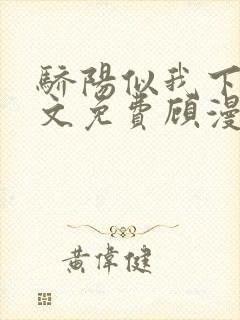 驕陽似我下
文免費顧漫
黃偉健